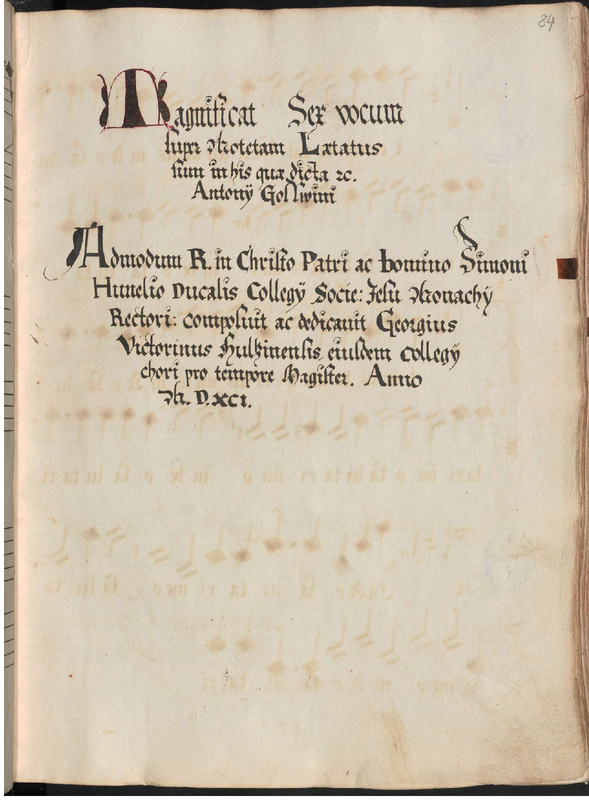 84
Magnificat Sex vocum
supr Motetam Lætatus
sum in his quæ dicta ꝛc.
Antonÿ Gosswini
Admodum R. in Christo Patri ac Domino Simoni
Ducalis Collegÿ Socie: Jesu Monachÿ
Rectori: composuit ac dedicauit Georgius
Victorinus eiusdem Collegÿ
chori pro tempore Magister. Anno
M. D. XCI.